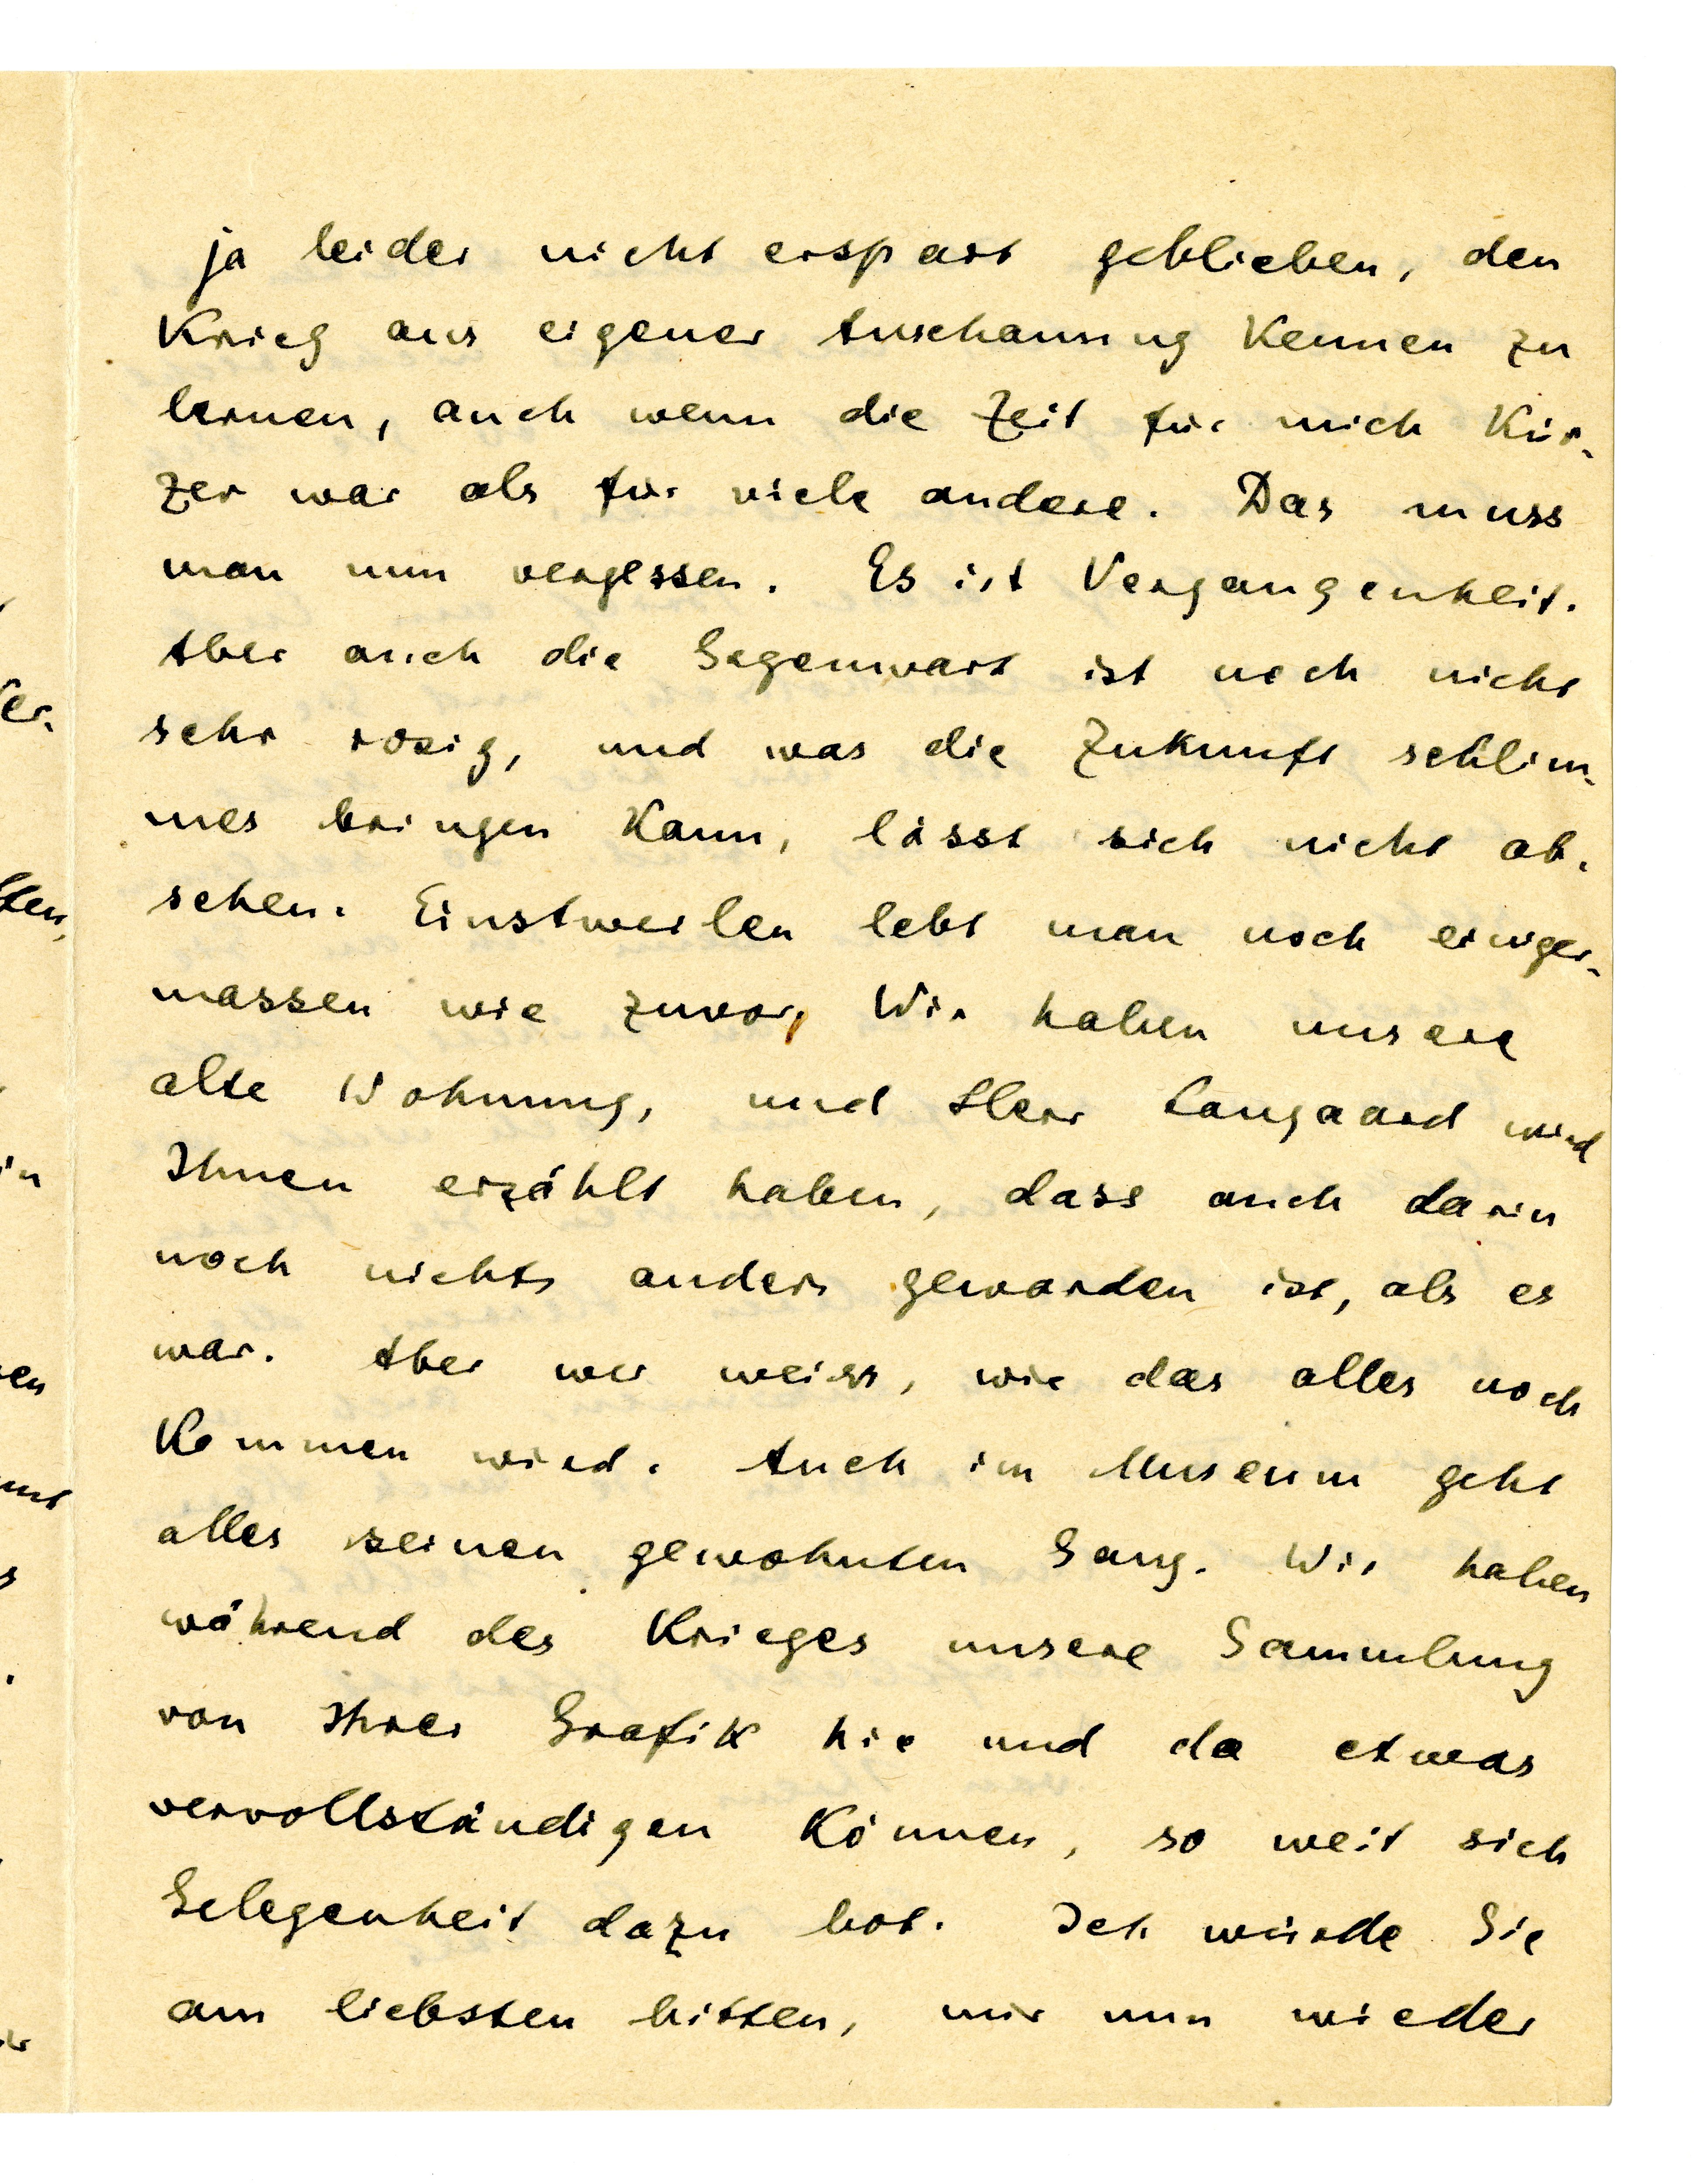 ja leider nicht erspart geblieben, den
Krieg aus eigener Anschauung kennen zu
lernen, auch wenn die Zeit für mich kür-
zer war als für viele andere. Das muss
man nun vergessen. Es ist Vergangenheit.
Aber auch die Gegenwart ist noch nicht
sehr rosig, und was die Zukunft schlim-
mes bringen kann, lässt sich nicht ab-
sehen. Einstweilen lebt man noch einiger-
massen wie zuvor, Wir haben unsere
alte Wohnung, und Herr Langaard wird
Ihnen erzählt haben, dass auch darin
noch nichts anders geworden ist, als es
war. Aber wer weiss, wie das alles noch
kommen wird. Auch im Museum geht
alles seinen gewohnten Gang. Wir haben
während des Krieges unsere Sammlung
von Ihrer Grafik hie und da etwas
vervollständigen können, so weit sich
Gelegenheit dazu bot. Ich würde Sie
am liebsten bitten, mir nun wieder